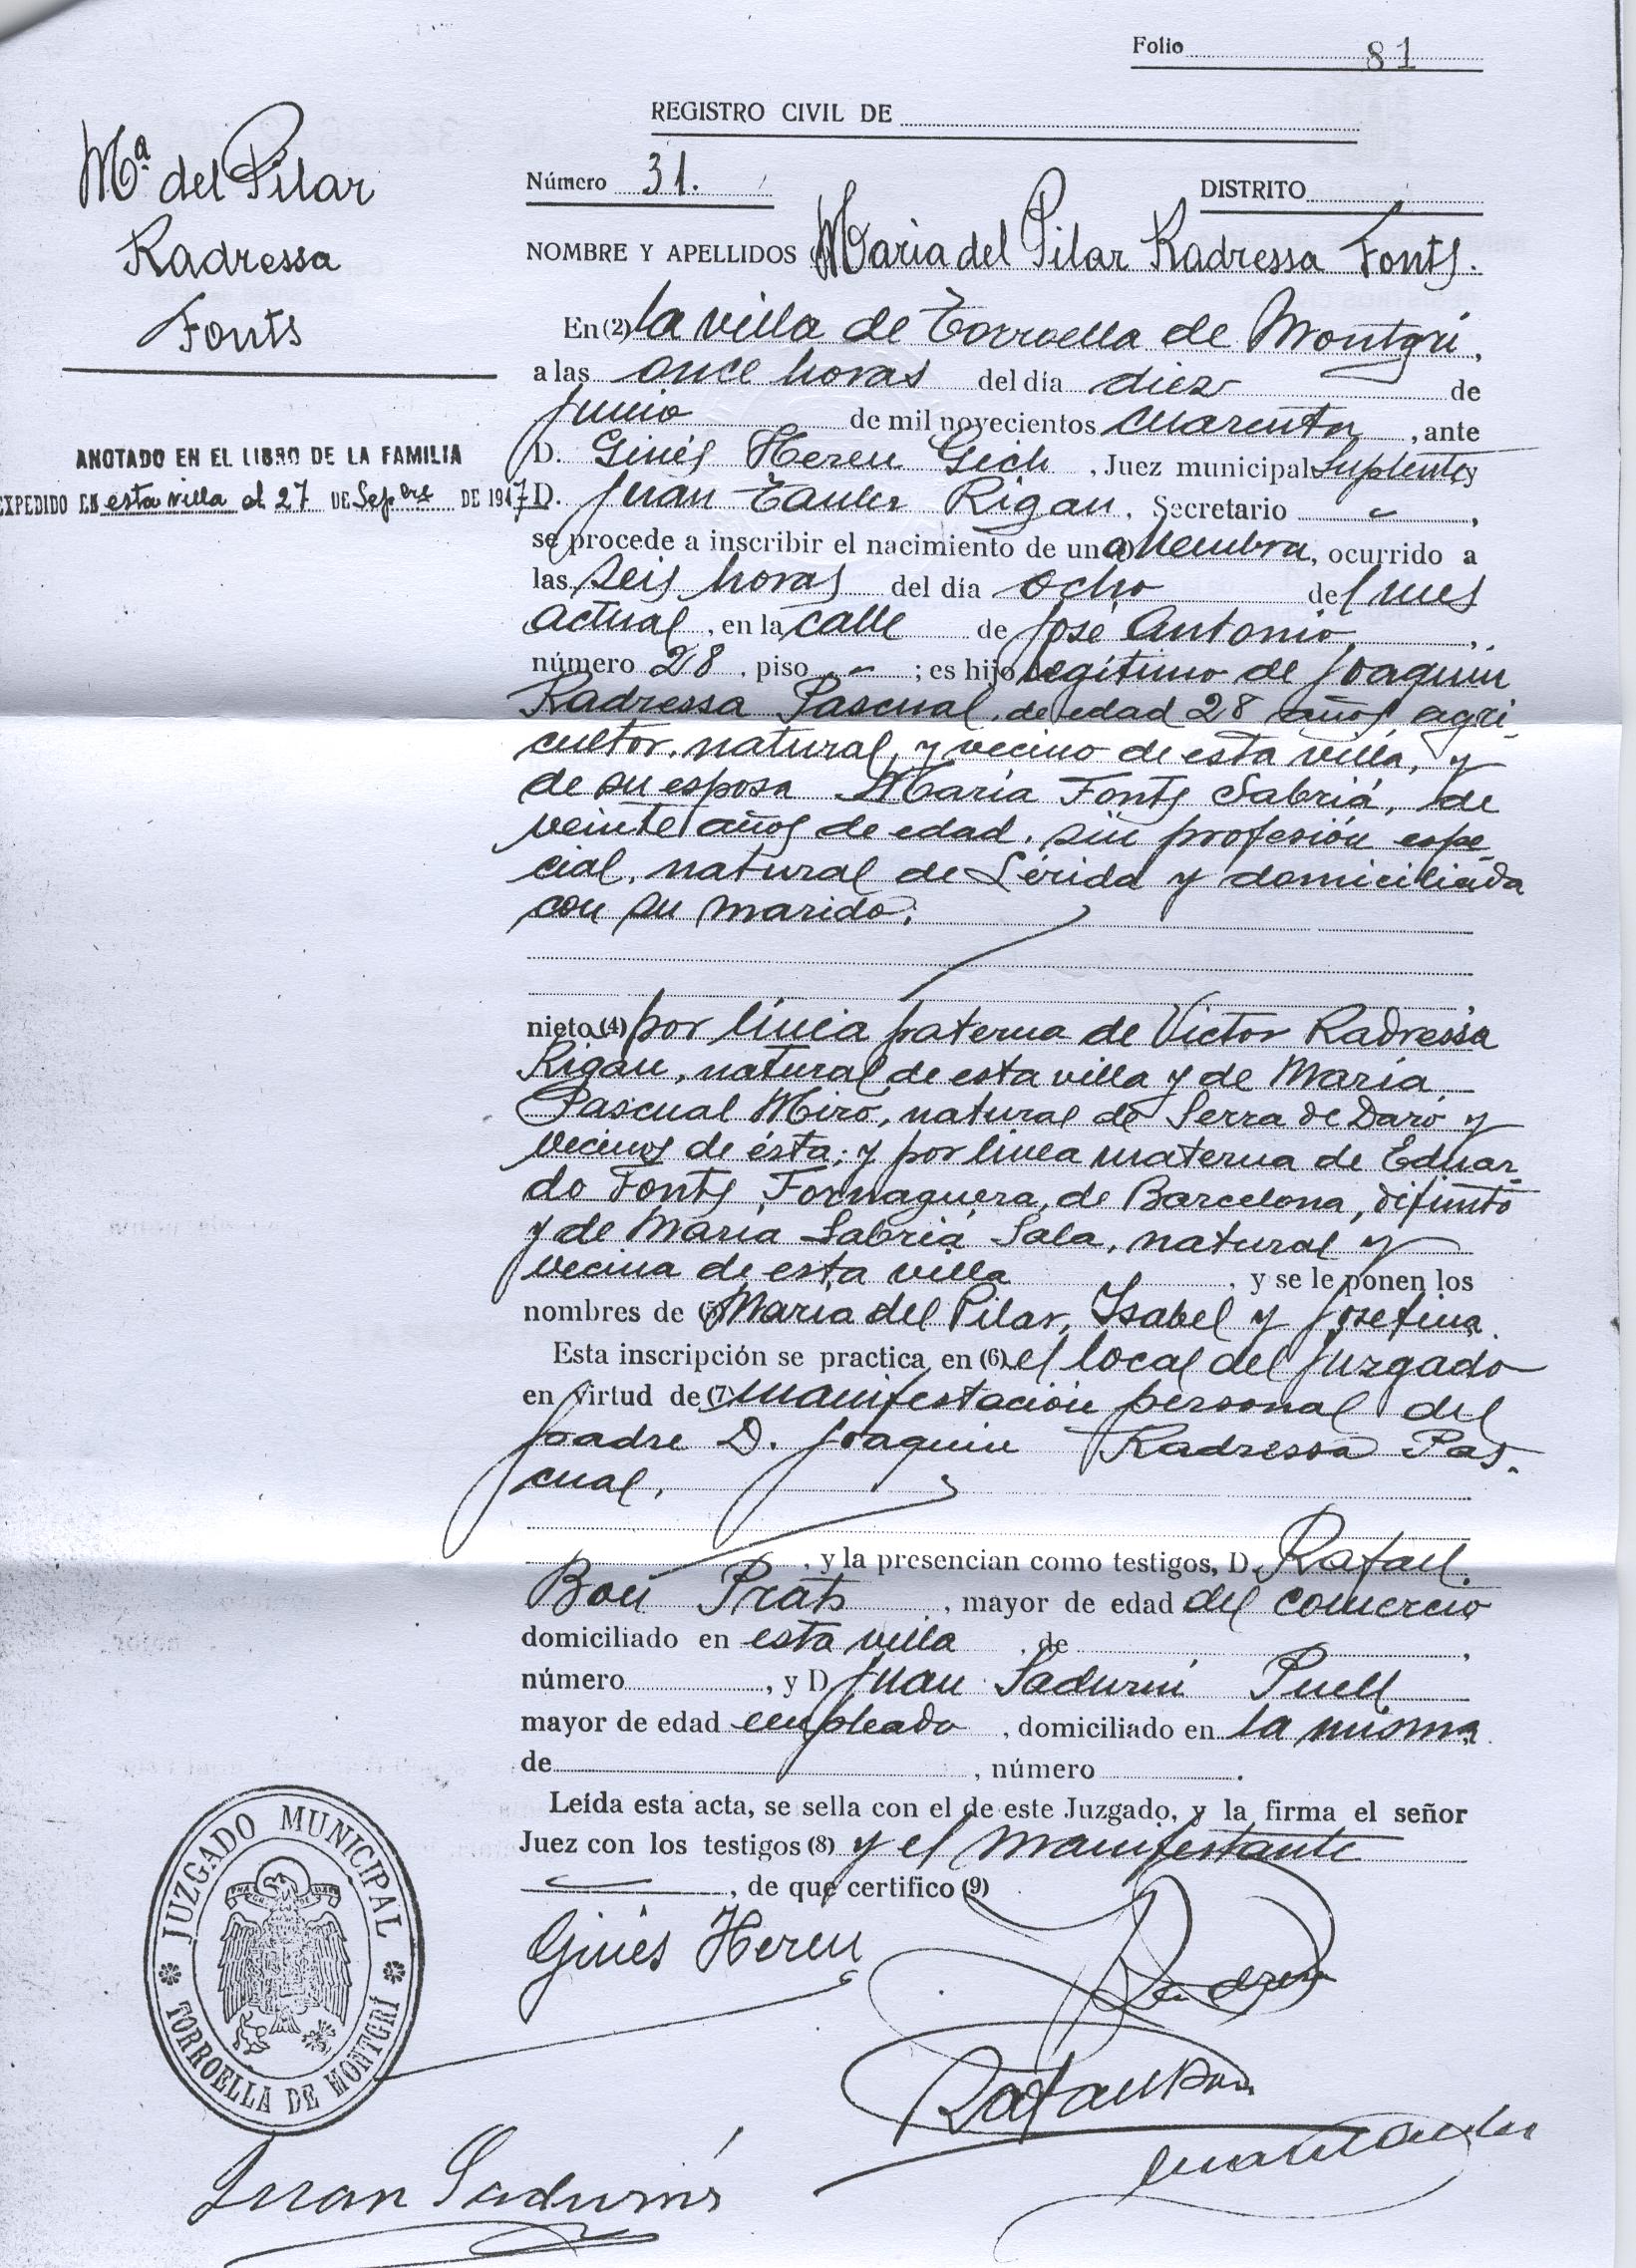 Folio 81
REGISTRO CIVIL DE
Mª del Pilar
Radressa
Fonts
ANOTADO EN EL LIBRO DE LA FAMILIA
EXPEDIDO EN esta villa el 27 DE Sepbre DE 1947
Número 31.
DISTRITO
NOMBRE Y APELLIDOS Maria del Pilar Radressa Fonts.
En (2) la villa de Torroella de Montgri,
a las once horas del día diez de
junio de mil novecientos cuarenta, ante
D. Ginés Hereu Gich, Juez municipal Suplente y
D. Juan Tauler Rigau, Secretario
se procede a inscribir el nacimiento de una hembra, ocurrido a
las seis horas del día ocho del mes
actual, en la calle de José Antonio,
número 28, piso - ; es hijo legítimo de Joaquin
Radressa Pascual, de edad 28 años agri-
cultor, natural y vecino de esta villa, y
de su esposa María Fonts Sabriá, de
veinte años de edad, sin profesión espe-
cial, natural de Lérida y domiciliada
con su marido.
nieto (4) por línea paterna de Victor Radressa
Rigau, natural de esta villa y de María
Pascual Miró, natural de Serra de Daró y
vecinos de ésta; y por línea materna de Eduar-
do Fonts Fornaguera, de Barcelona, difunto
y de María Sabriá Sala, natural y
vecina de esta villa, y se le ponen los
nombres de (5) María del Pilar, Isabel y Josefina.
Esta inscripción se practica en (6) el local del juzgado
en virtud de (7) manifestación personal del
padre D. Joaquin Radressa Pas-
cual.
, y la presencian como testigos, D. Rafael
Bou Prats, mayor de edad del comercio
domiciliado en esta villa, de ,
número , y D Juan Sadurní Puell
mayor de edad empleado, domiciliado en la misma
de , número .
Leída esta acta, se sella con el de este Juzgado, y la firma el señor
Juez con los testigos (8) y el manifestante
, de que certifico (9)
Ginés Hereu
JUZGADO MUNICIPAL
TORROELLA DE MONTGRÍ
Rafael Bou
Juan Tauler
Juan Sadurní